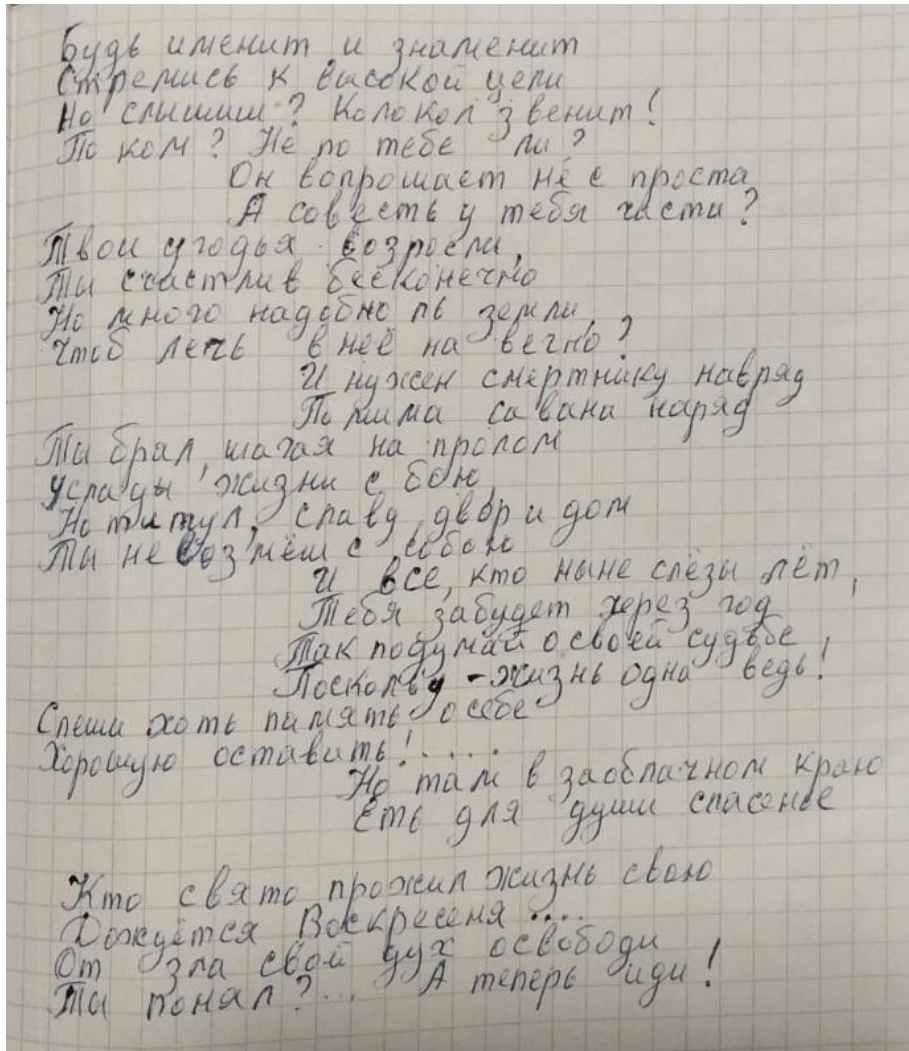 Будь именит и знаменит
Стремись к высокой цели
Но слышиш? Колокол звенит!
По ком? Не по тебе ли?
Он вопрошает не с проста
А совесть у тебя чиста?
Твои угодья возросли,
Ты счастлив бесконечно
Но много надобно ль земли,
Чтоб лечь в неё на вечно?
И нужен смертнику навряд
Помима савана наряд
Ты брал, шагая на пролом
Услады жизни с бою,
Но титул, славу, двор и дом
Ты не возмёш с собою
И все, кто ныне слёзы лёт,
Тебя забудет через год
Так подумай о своей судьбе,
Поскольку - жизнь одна ведь!
Спеши хоть память о себе
Хорошую оставить!.....
Но там в заоблачном краю
Еть для души спасенье
Кто свято прожил жизнь свою
Дождётся Воскресеня ....
От зла свой дух освободи
Ты понял?... А теперь иди!